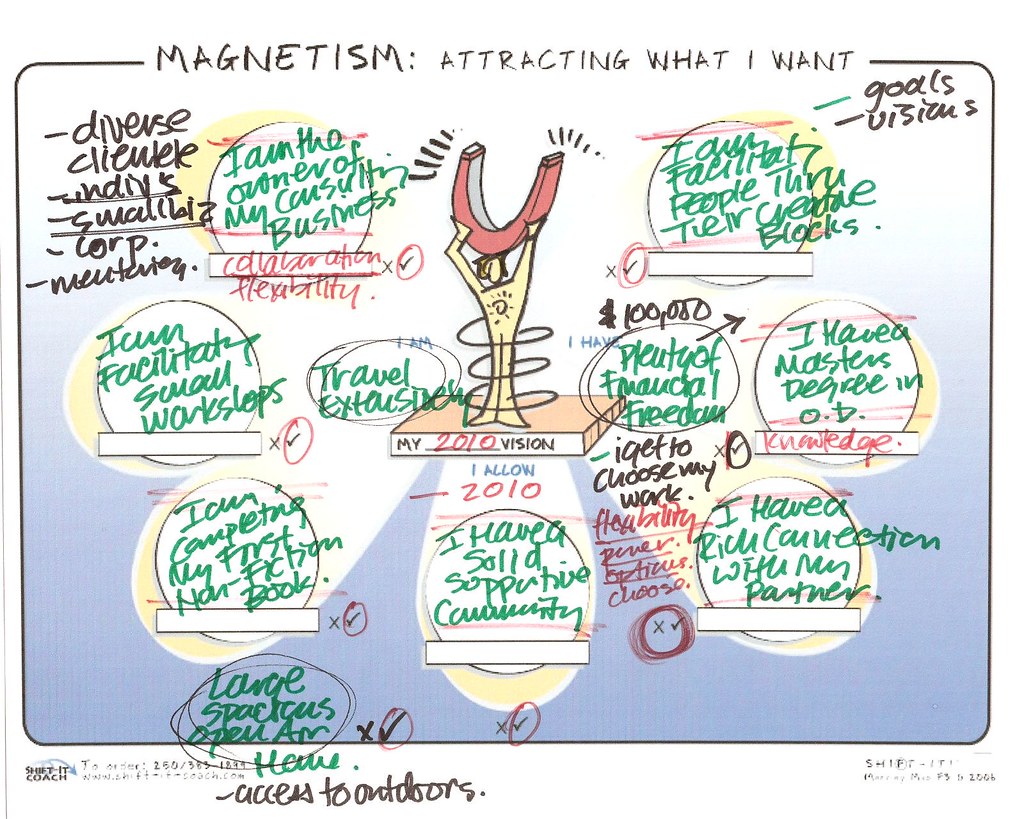 MAGNETISM: ATTRACTING WHAT I WANT
- goals
- visions
- diverse
clientele
- indiv's
- smallbiz
- corp.
- mentoring.
I am the
owner of
My Consulting
Business
collaboration
flexibility.
x✓
I am
Facilitatg
People Thru
Their Creative
Blocks.
x✓
I am
Facilitatg
Small
Workshops
x✓
I AM
Travel
Extensively
I HAVE
$100,000
Plenty of
Financial
Freedom
- i get to
choose my
work.
flexibility
power.
options.
choose.
I Have a
Masters
Degree in
O.D.
knowledge.
x✓
MY 2010 VISION
I ALLOW
- 2010
I am
Completing
My First
Non-Fiction
Book.
x✓
I Have a
Solid
Supportive
Community
x✓
I Have a
Rich Connection
with My
Partner.
x✓
Large
Spacious
Open Air
Home.
x✓
- access to outdoors.
SHIFT-IT
COACH
To order: 250/383-1899
www.shift-it-coach.com
SHIFT-IT!
2006